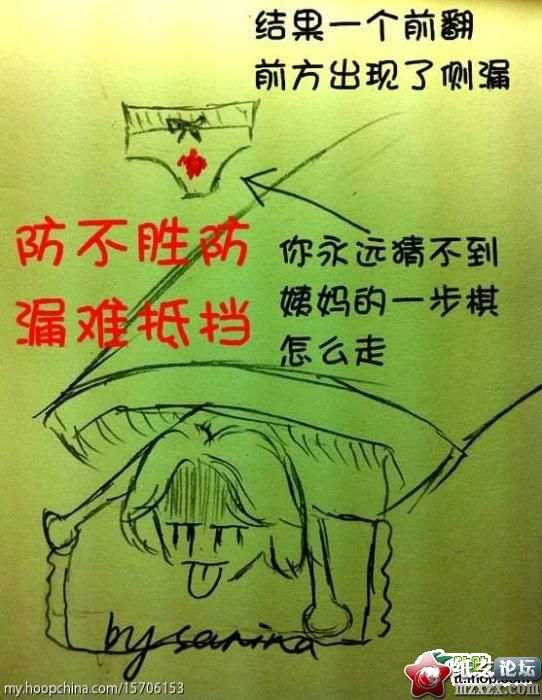 结果一个前翻
前方出现了侧漏
防不胜防
漏难抵挡
你永远猜不到
姨妈的一步棋
怎么走
by sanina
my.hoopchina.com/15706153
论坛